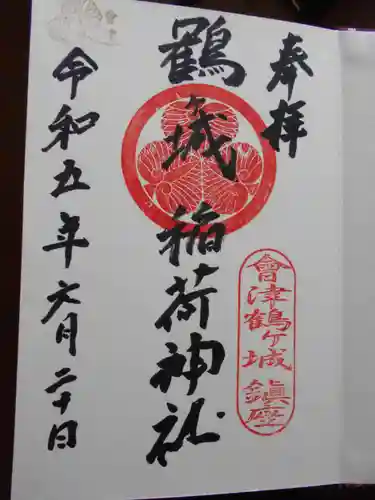 奉拝
鶴ヶ城稲荷神社
會津鶴ヶ城
鎮座
令和五年六月二十日